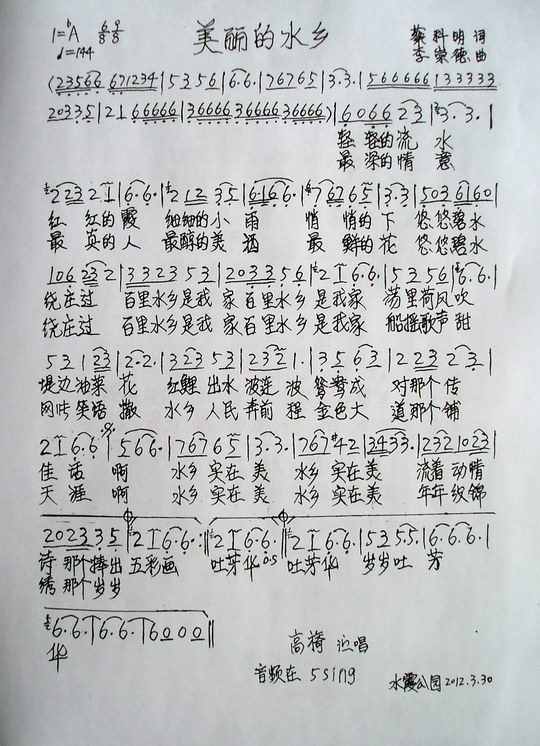 1=ᵇA 6/8 9/8
♩=144
美丽的水乡
蔡科明 词
李荣德 曲
(23566 671234|5 3 5 6|6· 6·|7 6765|3· 3·|5 666666|1 33333
2033 5|2 1 66666|36666 36666 36666)|6066 23|3· 3·|
轻轻的流水
最深的情意
223 21|6· 6·|212 35|6·16 6·|7 6765|3·3|503 6160|
红红的霞 细细的小雨 悄悄的下 悠悠碧水
最真的人 最醇的美酒 最鲜的花 悠悠碧水
106 23 2|3323 53|2033 56|21 6·6·|5356|6·6·|
绕庄过 百里水乡是我家百里水乡是我家 荡里荷风吹
绕庄过 百里水乡是我家百里水乡是我家 船摇歌声甜
53 1 23|2·2·|3235 3|232 1·|35 63|223 23·|
堤边油菜花 红鲤出水波连波 鸳鸯成对那个传
网片笑语撒 水乡人民奔前程 金色大道那个铺
21 6·6·|566·|76765|3·3·|767#42|3433·|232 1023|
佳话啊 水乡实在美 水乡实在美 流着动情
天涯啊 水乡实在美 水乡实在美 年年织锦
2023 35|21 6·6·:‖21 6·6·‖21 6·6·|53 55·|6·6·6·|
诗那个捧出五彩画 吐芳华 D.S 吐芳华 岁岁吐芳
绣那个岁岁
6·6·|6·6·|6000‖
华
高漪 演唱
音频在 5sing
水霞公园 2012.3.30